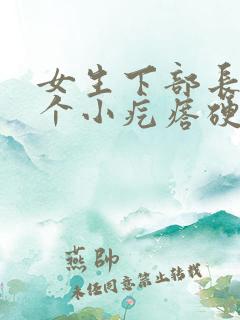 女生下部長
个小疙瘩硬
燕帥
未任同意禁止转载